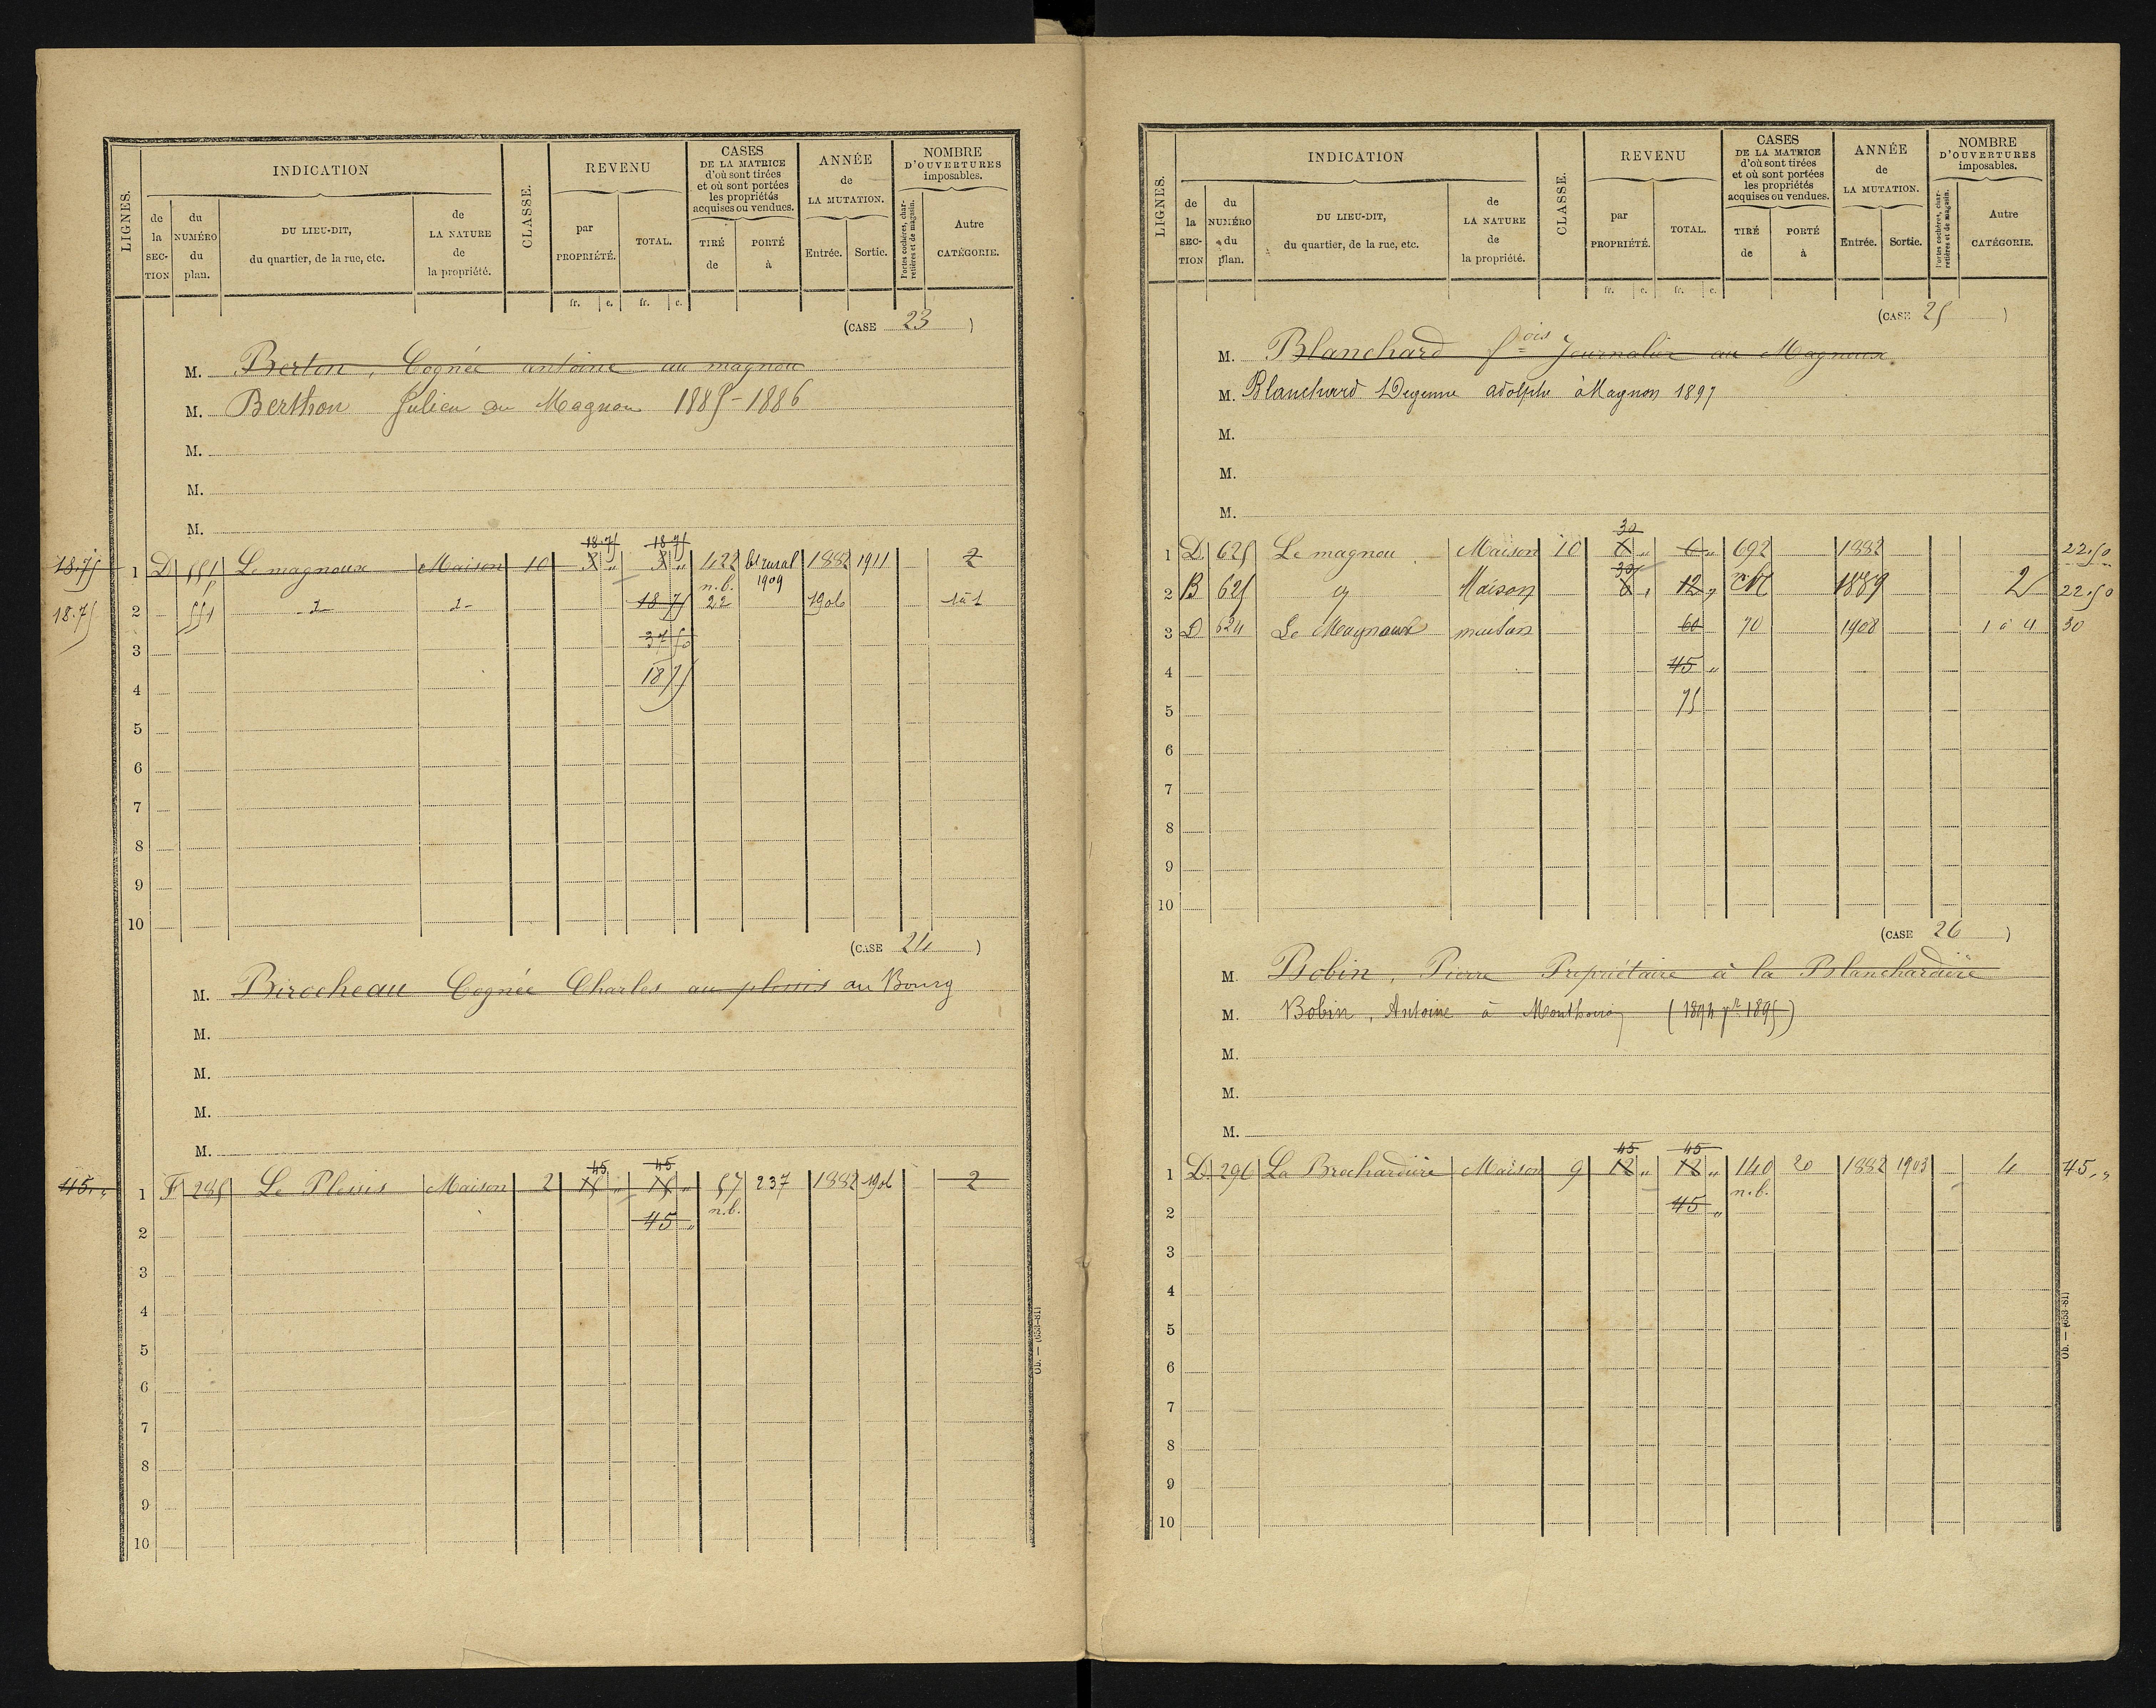 LIGNES.
INDICATION
de la SECTION
du NUMÉRO du plan.
DU LIEU-DIT, du quartier, de la rue, etc.
de LA NATURE de la propriété.
CLASSE.
REVENU
par PROPRIÉTÉ.
TOTAL.
fr. c. fr. c.
CASES DE LA MATRICE d'où sont tirées et où sont portées les propriétés acquises ou vendues.
TIRÉ de
PORTÉ à
ANNÉE de LA MUTATION.
Entrée. Sortie.
NOMBRE D'OUVERTURES imposables.
Portes cochères, charretières et de magasin.
Autre CATÉGORIE.
(CASE 23 )
M. Berton, Cognée antoine au magnou
M. Berthon Julien au Magnou 1885-1886
M.
M.
M.
18.75 18.75
18.75 1 D 551 Le magnoux Maison 10 3 " 3 " 422 bt rural 1882 1911 2
n.b. 1909
18.75 2 551 18 75 22 1906 1 à 1
3 37 50
4 18 75
5
6
7
8
9
10
(CASE 24 )
M. Birocheau Cognée Charles au plessis au Bourg
M.
M.
M.
M.
45 45
45." 1 F 285 Le Plessis Maison 2 15 " 15 " 57 237 1882 1906 2
n.b.
2 45 "
3
4
5
6
7
8
9
10
Ob. — (653-81)
LIGNES.
INDICATION
de la SECTION
du NUMÉRO du plan.
DU LIEU-DIT, du quartier, de la rue, etc.
de LA NATURE de la propriété.
CLASSE.
REVENU
par PROPRIÉTÉ.
TOTAL.
fr. c. fr. c.
CASES DE LA MATRICE d'où sont tirées et où sont portées les propriétés acquises ou vendues.
TIRÉ de
PORTÉ à
ANNÉE de LA MUTATION.
Entrée. Sortie.
NOMBRE D'OUVERTURES imposables.
Portes cochères, charretières et de magasin.
Autre CATÉGORIE.
(CASE 25 )
M. Blanchard fois Journalier au Magnoux
M. Blanchard Degenne adolphe à Magnon 1897
M.
M.
M.
30
1 D 625 Le magnou Maison 10 6 " 6 " 692 1882 22.50
30
2 B 625 Maison 6 " 12 " 1889 2 22.50
3 D 624 Le Magnoux maison 60 70 1908 1 à 4 30
4 45 "
5 75
6
7
8
9
10
(CASE 26 )
M. Bobin, Pierre Propriétaire à la Blanchardière
M. Bobin, Antoine à (1894 pr 1895)
M.
M.
M.
45 45
1 D 296 La Brochardière Maison 9 12 " 12 " 140 20 1882 1903 4 45."
n.b.
2 45 "
3
4
5
6
7
8
9
10
Ob. — (653-81)